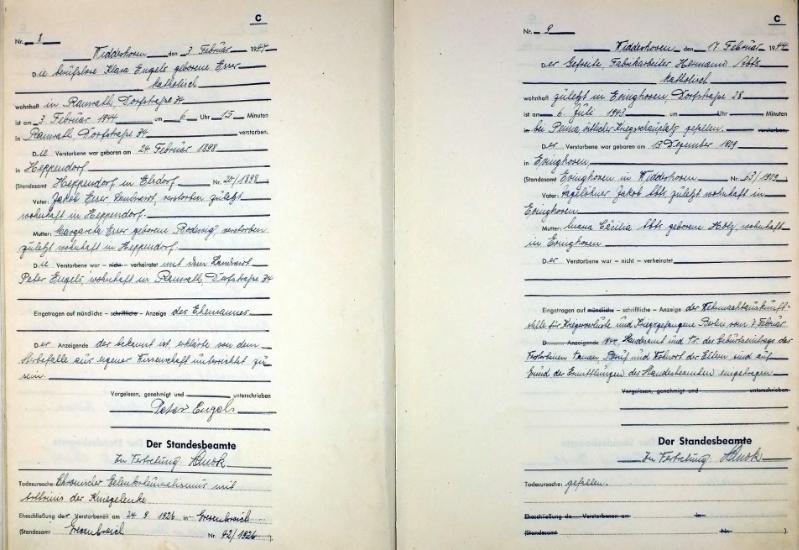 C
Nr. 8
Widdeshoven den 3. Februar 1944
Die berufslose Klara Engels geborene Esser
katholisch
wohnhaft in Ramrath, Dorfstraße 74
ist am 3. Februar 1944 um 6 Uhr 15 Minuten
in Ramrath, Dorfstraße 74 verstorben.
Die Verstorbene war geboren am 24. Februar 1898
in Heppendorf
(Standesamt Heppendorf in Elsdorf Nr. 20/1898
Vater: Jakob Esser Landwirt, verstorben zuletzt
wohnhaft in Heppendorf.
Mutter: Margareta Esser geborene verstorben
zuletzt wohnhaft in Heppendorf
Die Verstorbene war – nicht – verheiratet mit dem Landwirt
Peter Engels wohnhaft in Ramrath, Dorfstraße 74
Eingetragen auf mündliche – schriftliche – Anzeige des Ehemannes
Der Anzeigende der bekannt ist, erklärte von dem
Sterbefalle aus eigener Wissenschaft unterrichtet zu
sein.
Vorgelesen, genehmigt und unterschrieben
Peter Engels
Der Standesbeamte
In Vertretung
Todesursache: Chronischer Gelenkrheumatismus mit
der Kniegelenke
Eheschließung der Verstorbenen am 24. 9. 1926 in Grevenbroich
(Standesamt Grevenbroich Nr. 42/1926)
C
Nr. 9
Widdeshoven den 17. Februar 1944
Der Gefreite Fabrikarbeiter Hermann
katholisch
wohnhaft zuletzt in Evinghoven, Dorfstraße 28
ist am 6. Juli 1943 um Uhr Minuten
in bei östlicher Kriegsschauplatz gefallen. verstorben.
Der Verstorbene war geboren am 13. Dezember 1909
in Evinghoven
(Standesamt Evinghoven in Widdeshoven Nr. 53/1909
Vater: Tagelöhner Jakob zuletzt wohnhaft in
Evinghoven
Mutter: Cäcilia geborene wohnhaft
in Evinghoven
Der Verstorbene war – nicht – verheiratet
Eingetragen auf mündliche – schriftliche – Anzeige der Wehrmachtauskunft-
stelle für Kriegsverluste und Kriegsgefangene Berlin vom 7. Februar
Anzeigende 1944. Standesamt und Nr. des Geburtseintrags des
Verstorbenen Namen, Beruf und Wohnort der Eltern sind auf
Grund der Ermittlungen des Standesbeamten eingetragen
Vorgelesen, genehmigt und unterschrieben
Der Standesbeamte
In Vertretung
Todesursache: gefallen.
Eheschließung de Verstorbenen am in
(Standesamt Nr. )